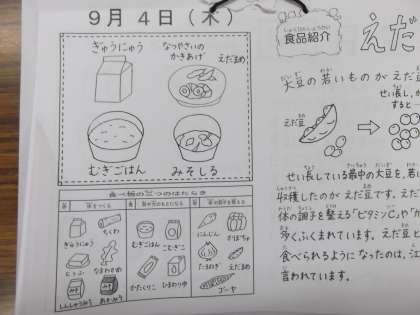 9月4日(木)
ぎゅうにゅう
なつやさいの
かきあげ
えだまめ
むぎごはん
みそしる
食べ物の三つのはたらき
ぎゅうにゅう
ちくわ
とうふ
なまわかめ
しんしゅうみそ
あかみそ
むぎごはん
こむぎこ
かたくりこ
ひまわりゆ
にんじん
かぼちゃ
たまねぎ
えだまめ
ゴーヤ
食品紹介
えだ
大豆の若いものがえだ豆
せい長し、か
すると
えだ豆
せい長している最中の大豆を、若い
収穫したのがえだ豆です。えだ
体の調子を整える「ビタミンC」や「カ
多くふくまれています。えだ豆と
食べられるようになったのは、江
言われています。